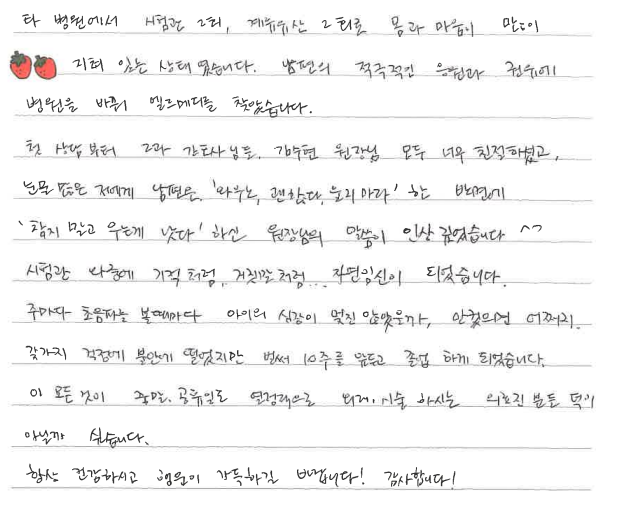 타 병원에서 시험관 2회, 계류유산 2회로 몸과 마음이 많이
지쳐 있는 상태 였습니다. 남편의 적극적인 응원과 권유에
병원을 바꿔 엘르메디를 찾았습니다.
첫 상담부터 2과 간호사님들, 김수현 원장님 모두 너무 친절하셨고,
눈물 많은 저에게 남편은 '와우노, 괜찮다, 울지마라' 한 반면에
'참지 말고 우는게 낫다' 하신 원장님의 말씀이 인상 깊었습니다 ^^
시험관 와중에 기적처럼, 거짓말처럼... 자연임신이 되었습니다.
주마다 초음파를 볼때마다 아이의 심장이 멎진 않았을까, 안컸으면 어쩌지.
갖가지 걱정에 불안에 떨었지만 벌써 10주를 앞두고 졸업 하게 되었습니다.
이 모든 것이 주말, 공휴일도 열정적으로 외래, 시술 하시는 의료진 분들 덕이
아닐까 싶습니다.
항상 건강하시고 행운이 가득하길 바랍니다! 감사합니다!